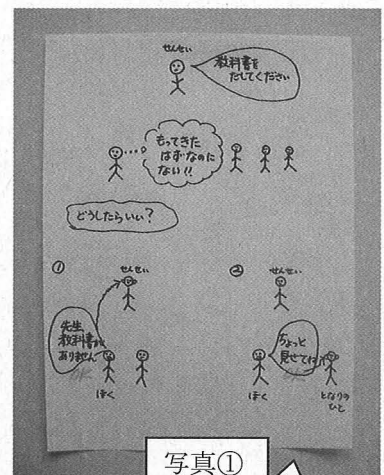 せんせい
教科書を
だしてください
もってきた
はずなのに
ない!!
どうしたらいい?
①
せんせい
先生
教科書が
ありません
OK
ぼく
②
せんせい
ちょっと
見せて
OK
ぼく
となりの
ひと
写真①